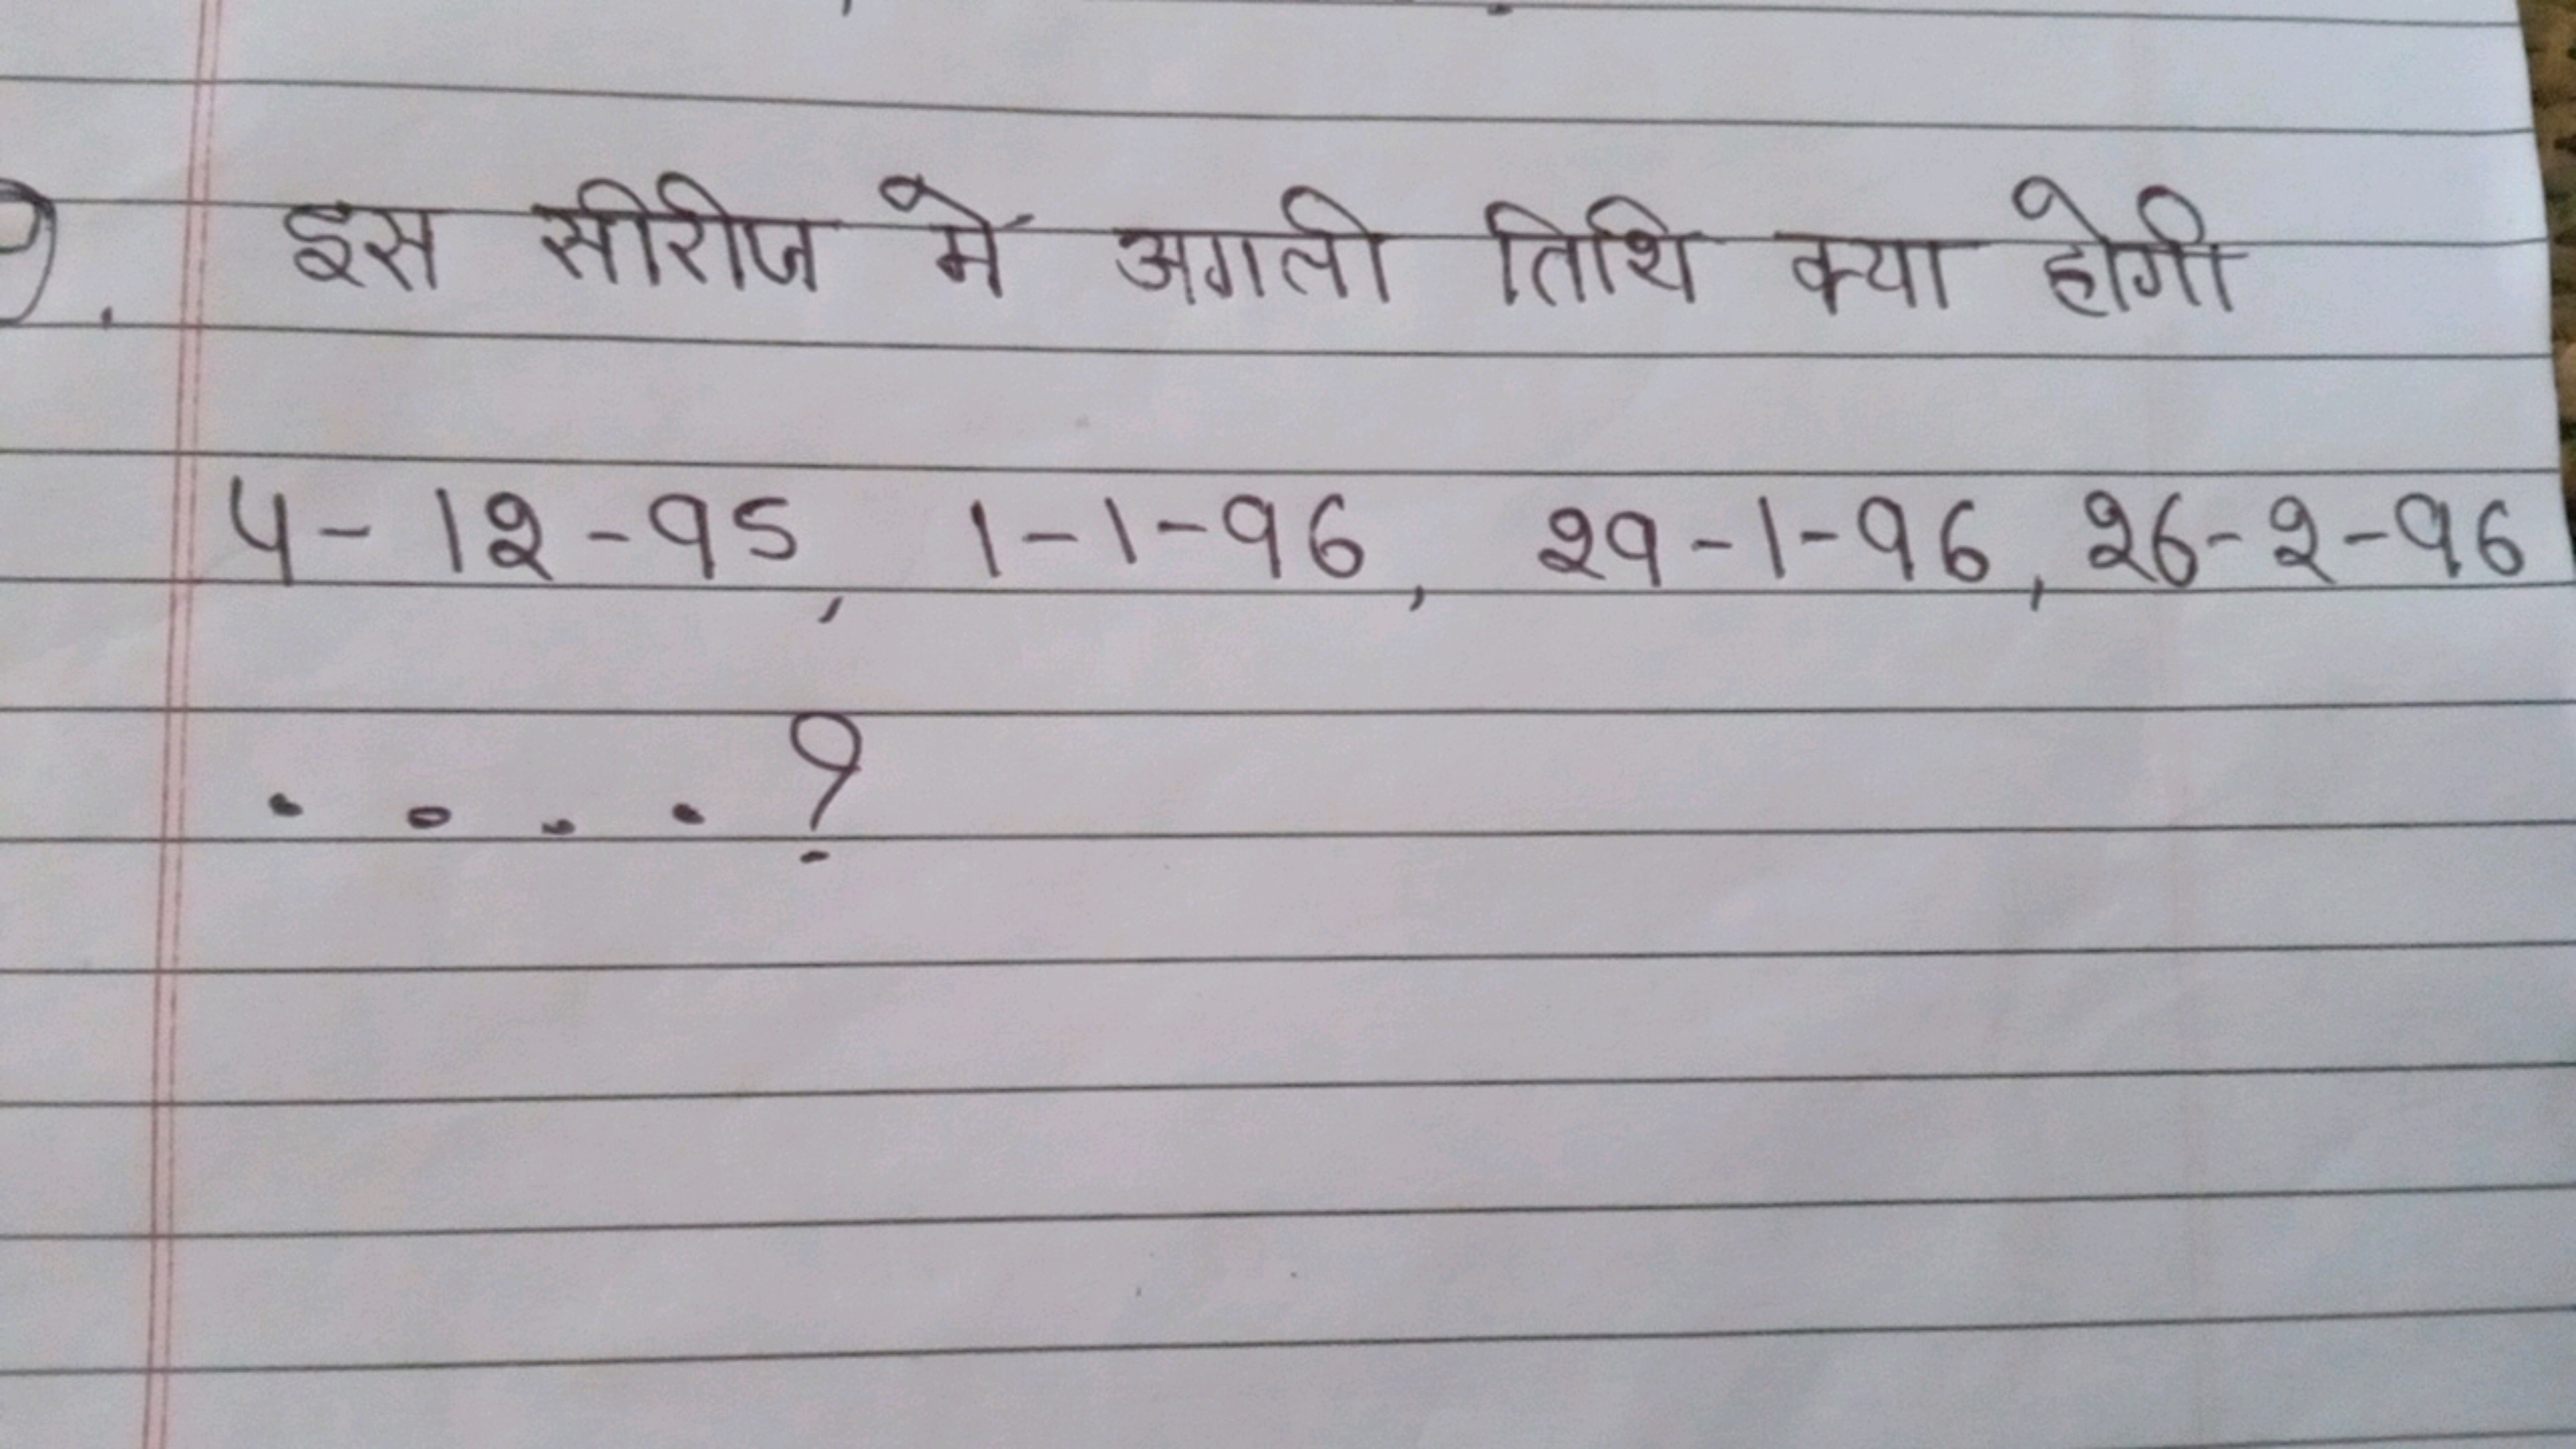 इस सीरीज में अगली तिथि क्या होगी
4-12-95, 1-1-96, 29-1-96, 26-2-96
....?